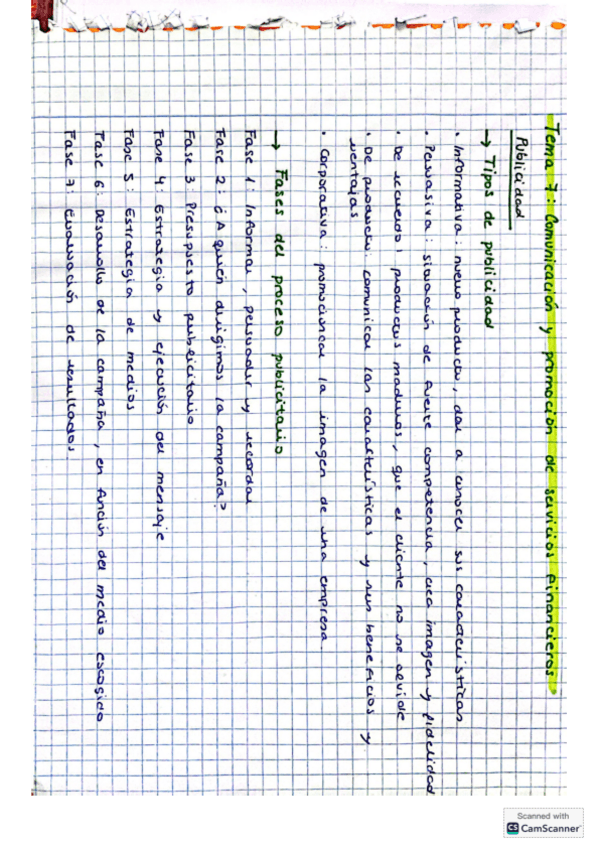 Tema 7: Comunicación y promoción de servicios financieros.
Publicidad
→ Tipos de publicidad
· Informativa: nuevo producto, dar a conocer sus características
· Persuasiva: situación de fuerte competencia, crea imagen y fidelidad
· De recuerdo: productos maduros, que el cliente no se olvide
· De producto: comunicar las características y sus beneficios y
ventajas
· Corporativa: promocionar la imagen de una empresa.
→ Fases del proceso publicitario
Fase 1: Informar, persuadir y recordar
Fase 2: ¿A quién dirigimos la campaña?
Fase 3: Presupuesto publicitario
Fase 4: Estrategia y ejecución del mensaje
Fase 5: Estrategia de medios
Fase 6: Desarrollo de la campaña, en función del medio escogido
Fase 7: Evaluación de resultados.
Scanned with
CS CamScanner